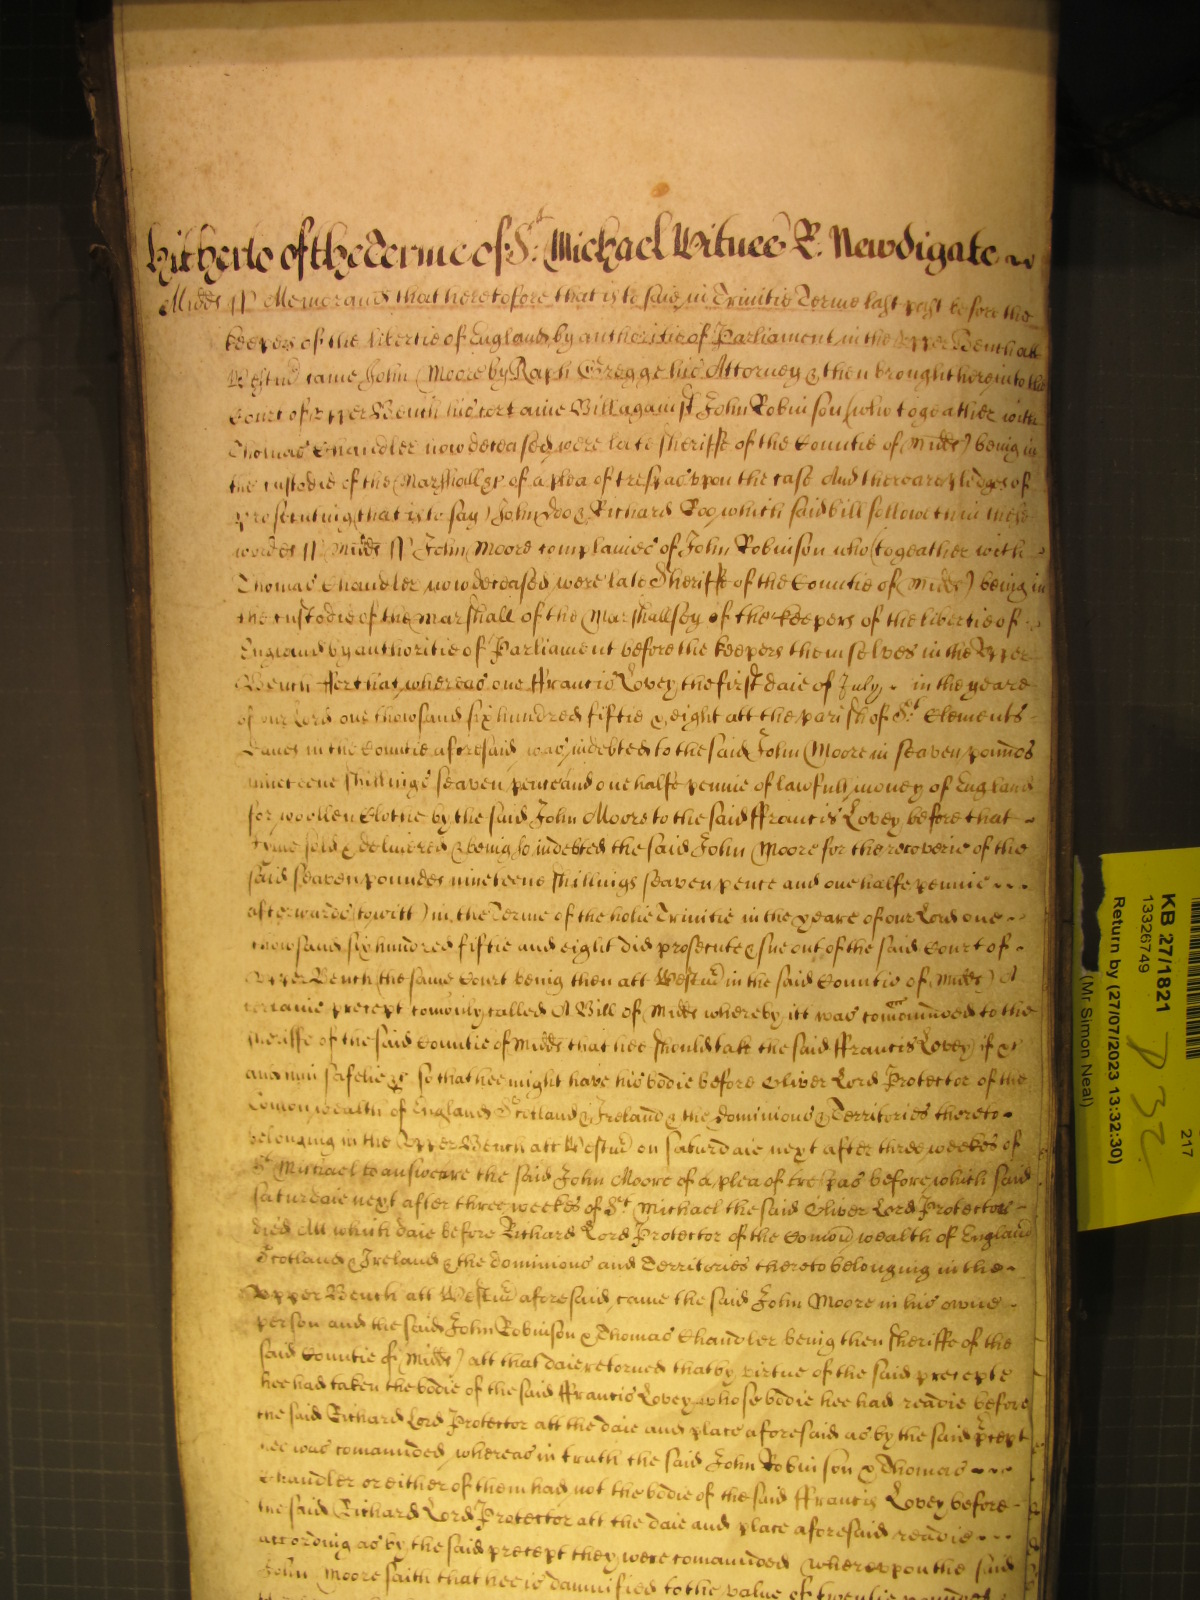 hitherto of the Terme of St. Michael Witnes R. Newdigate
Midds ss Memorand that heretofore that is to saie in Trinitie Terme last past before the
keepers of the libertie of England by authoritie of Parliament in the upper Bench att
Westm came John Moore by Raph Gregge his Attorney & then brought here into the
Court of upper Bench his certaine Bill against John Robinson (who togeather with
Thomas Chandler now deceased were late Sheriffe of the Countie of Midds) being in
the custodie of the Marshall &c of a plea of trespas upon the case And there are pledges of
prosecuting (that is to say) John Doo & Richard Roo, which said bill followeth in these
wordes ss Midds ss John Moore complaines of John Robinson who (togeather with
Thomas Chandler now deceased were late Sheriffe of the Countie of Midds) being in
the custodie of the Marshall of the Marshallsey of the keepers of the libertie of
England by authoritie of Parliament before the keepers themselves in the upper
Bench ffor that whereas one ffrancis Lovey the first daie of July in the yeare
of our Lord one thowsand six hundred fiftie & eight att the parish of St. Clements
Danes in the Countie aforesaid was indebted to the said John Moore in seaven pounds
nineteene shillings seaven pence and one halfe pennie of lawfull money of England
for woollen Clothe by the said John Moore to the said ffrancis Lovey before that
tyme sold & delivered & being so indebted the said John Moore for the recoverie of the
said seaven poundes nineteene shillings seaven pence and one halfe pennie
afterwards (towitt) in the Terme of the holie Trinitie in the yeare of our Lord one
thowsand six hundred fiftie and eight did prosecute & sue out of the said Court of
upper Bench the same Court being then att Westm in the said Countie of Midds) A
certaine precept comonly called A Bill of Midds whereby itt was comannded to the
Sheriffe of the said Countie of Midds that hee should take the said ffrancis Lovey if &c
and him safelie &c so that hee might have his bodie before Oliver Lord Protector of the
Comonwealth of England Scotland & Ireland & the dominions & Territories thereto
belonging in the Upper Bench att Westm on saturdaie next after three weekes of
St Michael to answeare the said John Moore of a plea of trespas before which said
saturdaie next after three weekes of St. Michael the said Oliver Lord Protector
died Att which daie before Richard Lord Protector of the Comon wealth of England
Scotland & Ireland & the dominions and Territories thereto belonging in the
Upper Bench att Westm aforesaid came the said John Moore in his owne
person and the said John Robinson & Thomas Chandler being then Sheriffe of the
said Countie of Midds) att that daie retorned that by virtue of the said precepte
hee had taken the bodie of the said ffrancis Lovey whose bodie hee had readie before
the said Richard Lord Protector att the daie and place aforesaid as by the said precept
hee was comannded whereas in truth the said John Robinson & Thomas
Chandler or either of them had not the bodie of the said ffrancis Lovey before
the said Richard Lord Protector att the daie and place aforesaid readie
according as by the said precept they were comannded whereupon the said
John Moore saith that hee is damnified to the value of twentie pounds
KB 27/1821
13326749
Return by (27/07/2023 13:32:30)
(Mr Simon Neal)
2117